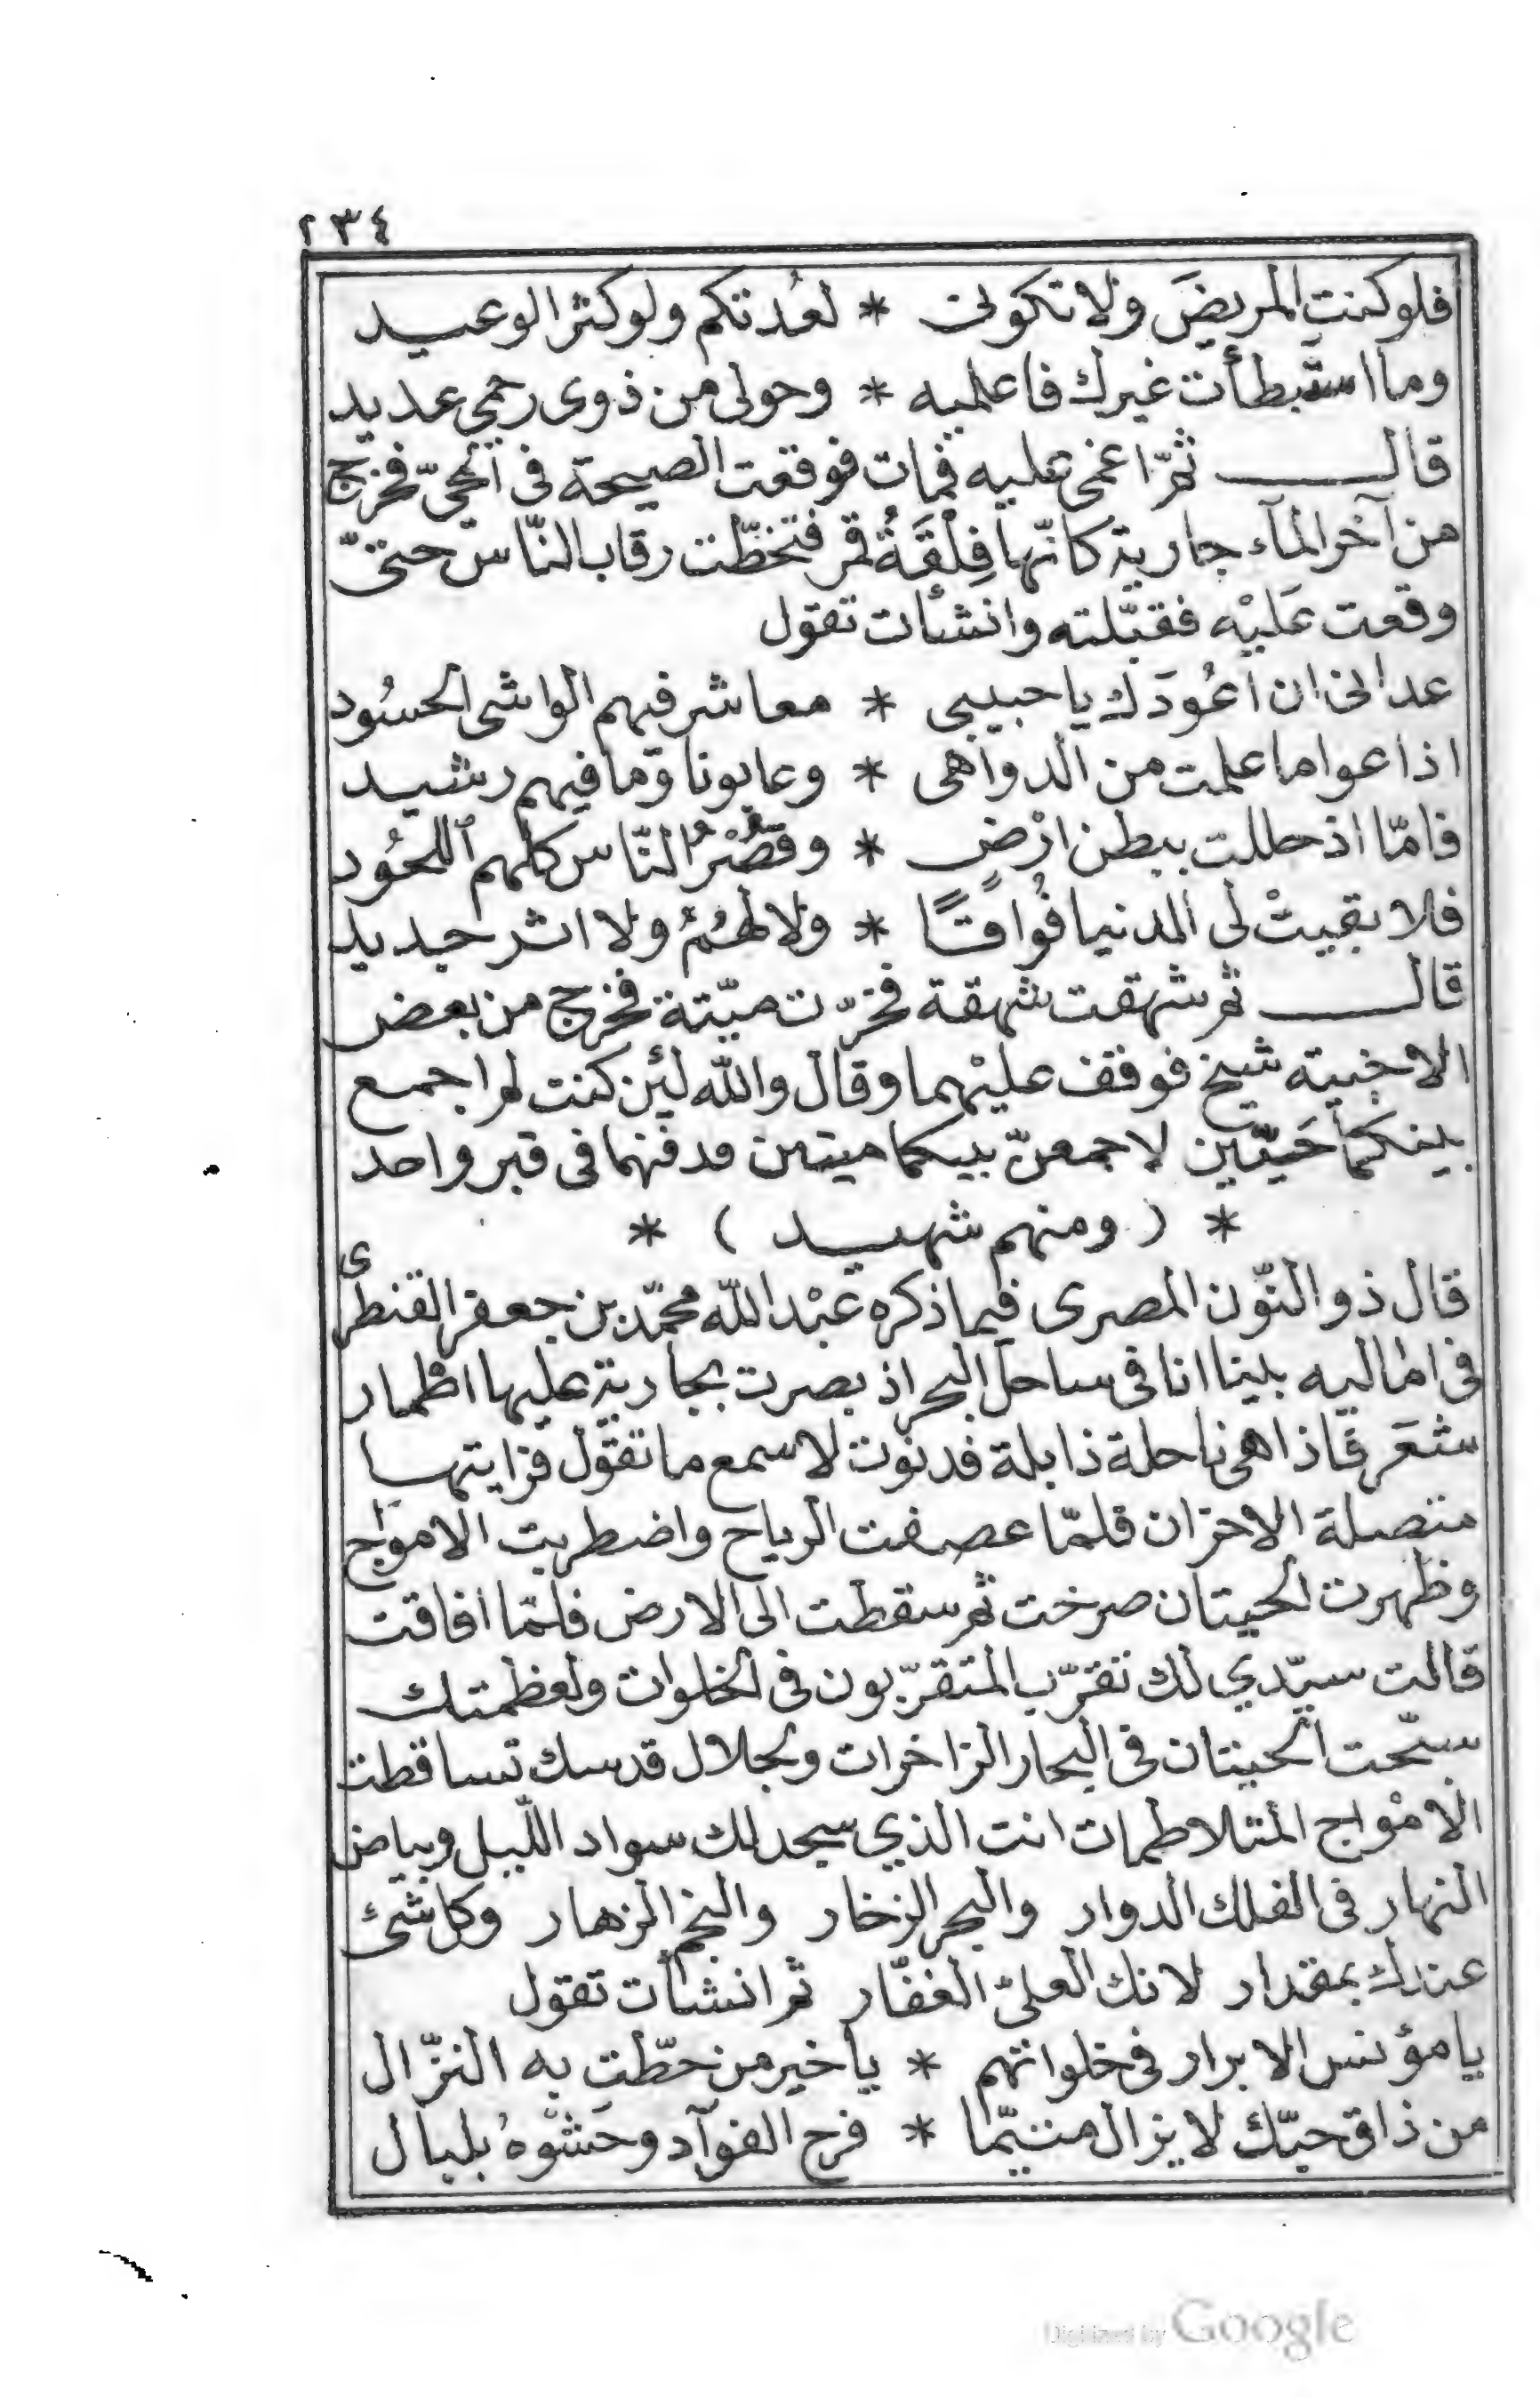 ٢٣٤
فلو كنتِ المريضَ ولا تكونى * لعُدتكم ولو كثر الوعيد
وما استبطأت غيرك فاعلميه * وحولى من ذوى رحمى عديد
قال ثمّ اغمى عليه فمات فوقعت الصيحة فى الحىّ فخرج
من آخر المآء جارية كانّها فِلْقَةُ قمر فتخطّت رقاب النّاس حتىّ
وقعت عَليْه فقبّلته وانشأت تقول
عدانى ان اعُودَك يا حبيبى * معاشر فيهم الواشى الحسُود
اذاعوا ما علمت من الدواهى * وعابونا وما فيهم رشيد
فامّا اذ حللت ببطن ارْضٍ * وقصْرُ النّاس كلهم اللحُود
فلا بقيتْ لى الدنيا فُواقًا * ولا لهُمُ ولا اثر حديد
قال ثم شهقت شهقة فخرّت ميّتة فخرج من بعض
الاخبية شيخ فوقف عليْهما وقال والله لئن كنت لم اجمع
بينكما حَيّين لاجمعنّ بينكما ميتين فدفنهما فى قبر واحد
* ( ومنهم شهيد ) *
قال ذو النّون المصرى فيما ذكره عبْد الله محمّد بن جعفر القنطرى
فى اماليه بينا انا فى ساحل البحر اذ بصرت بجارية عليها اطمار
شعَر فاذا هى ناحلة ذابلة فدنوت لاسمع ما تقول فرايتها
متصلة الاحزان فلمّا عصفت الرياح واضطربت الامواج
وظهرت الحيتان صرخت ثم سقطت الى الارض فلمّا افاقت
قالت سيّدي لك تقرّب المتقرّبون فى الخلوات ولعظمتك
سبّحت الحيتان فى البحار الزاخرات ولجلال قدسك تساقطت
الامْواج المتلاطمات انت الذي سجد لك سواد اللّيل وبياض
النهار فى الفلك الدوار والبحر الزخار والنجم الزهار وكل شئ
عندك بمقدار لانك العلىّ الغفّار ثم انشأت تقول
يا مؤنس الابرار فى خلواتهم * يا خير من حطّت به النزّال
من ذاق حبّك لا يزال متيّما * فرح الفوآد وحَشْوهُ بلبال
Digitized by Google